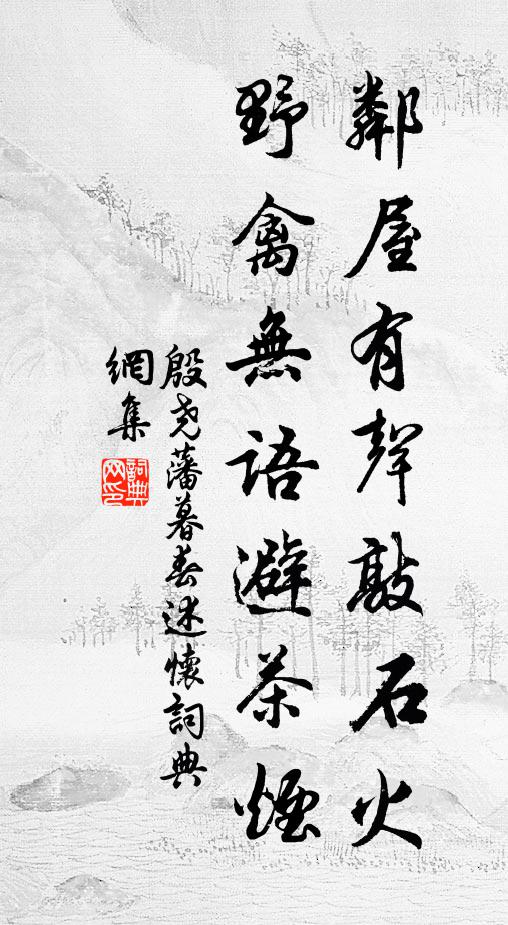 鄰屋有聲敲石火
野禽無語避茶煙
殷尧藩暮春述懷詞典
網集
詞典
网印